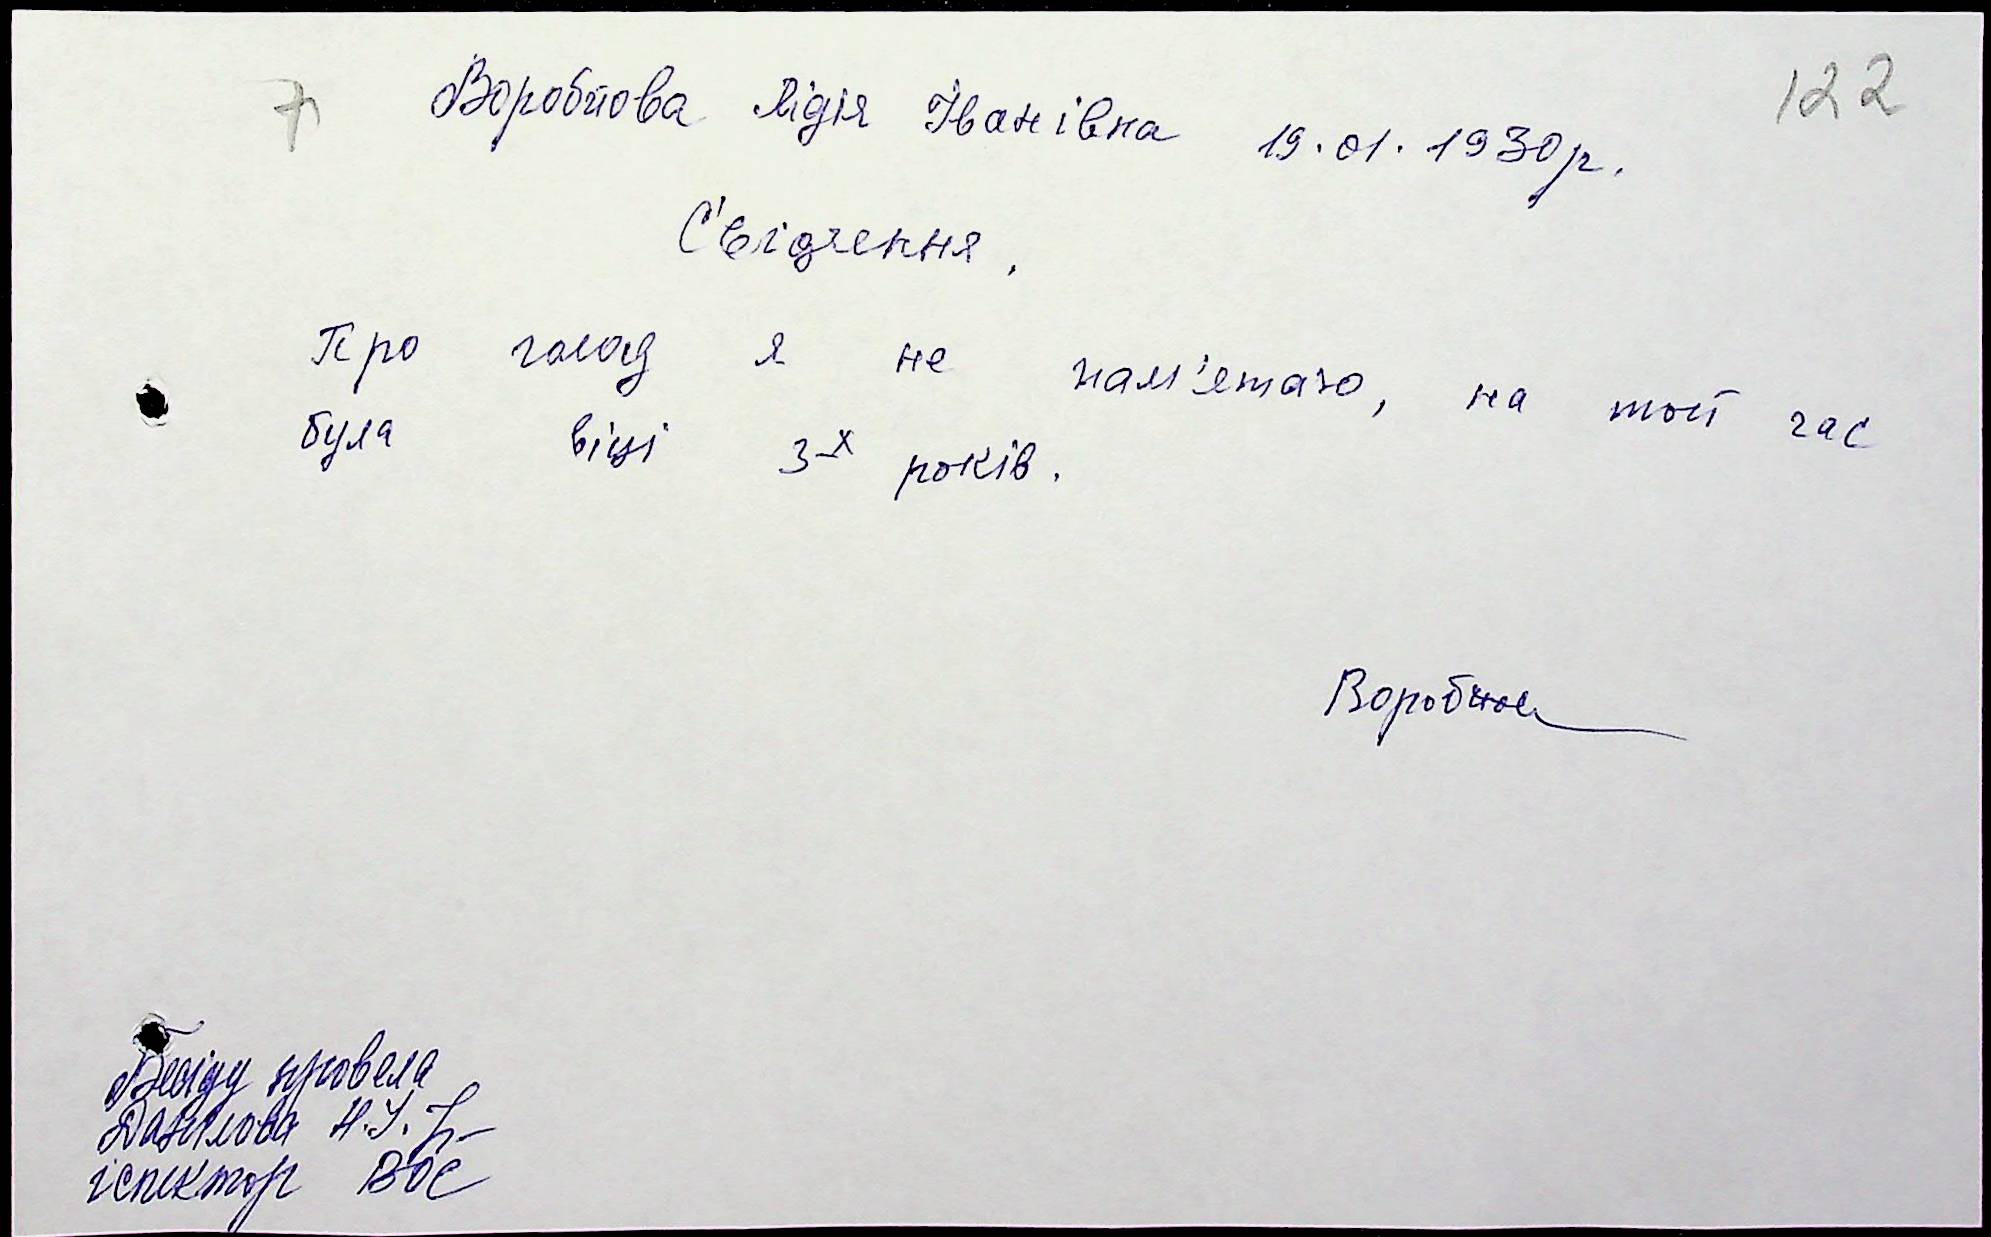 7 Воробйова Лідія Іванівна 19.01.1930р. 122
С'відчення.
Про голод я не пам'ятаю, на той час
була віці 3-х років.
Воробйов
Бесіду провела
Данілова Н.І.
іспектор ВОС